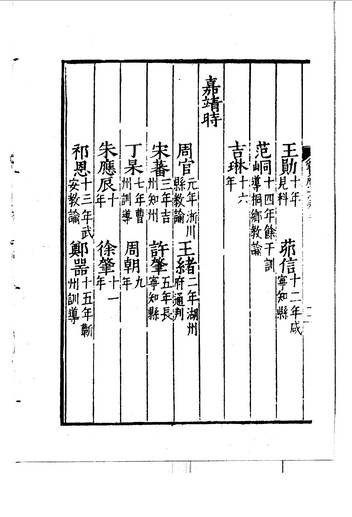 王勛十年見科 茆信十二年咸寧知縣
范峒十四年餘干訓導桐鄉教諭
吉琳十六年
嘉靖時
周官元年淅川縣教諭 王緒二年湖州府通判
宋蕃三年吉州知州 許肇五年長寧知縣
丁杲七年曹州訓導 周朝九年
朱應辰十年 徐肇十一年
祁恩十三年武安教諭 鄭器十五年蘄州訓導